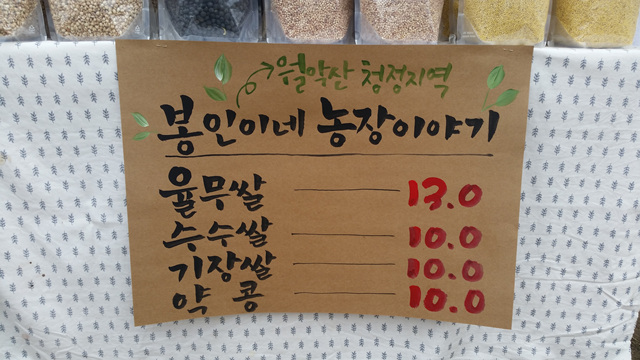 월악산 청정지역
봉인이네 농장이야기
율무쌀 13.0
수수쌀 10.0
기장쌀 10.0
약콩 10.0